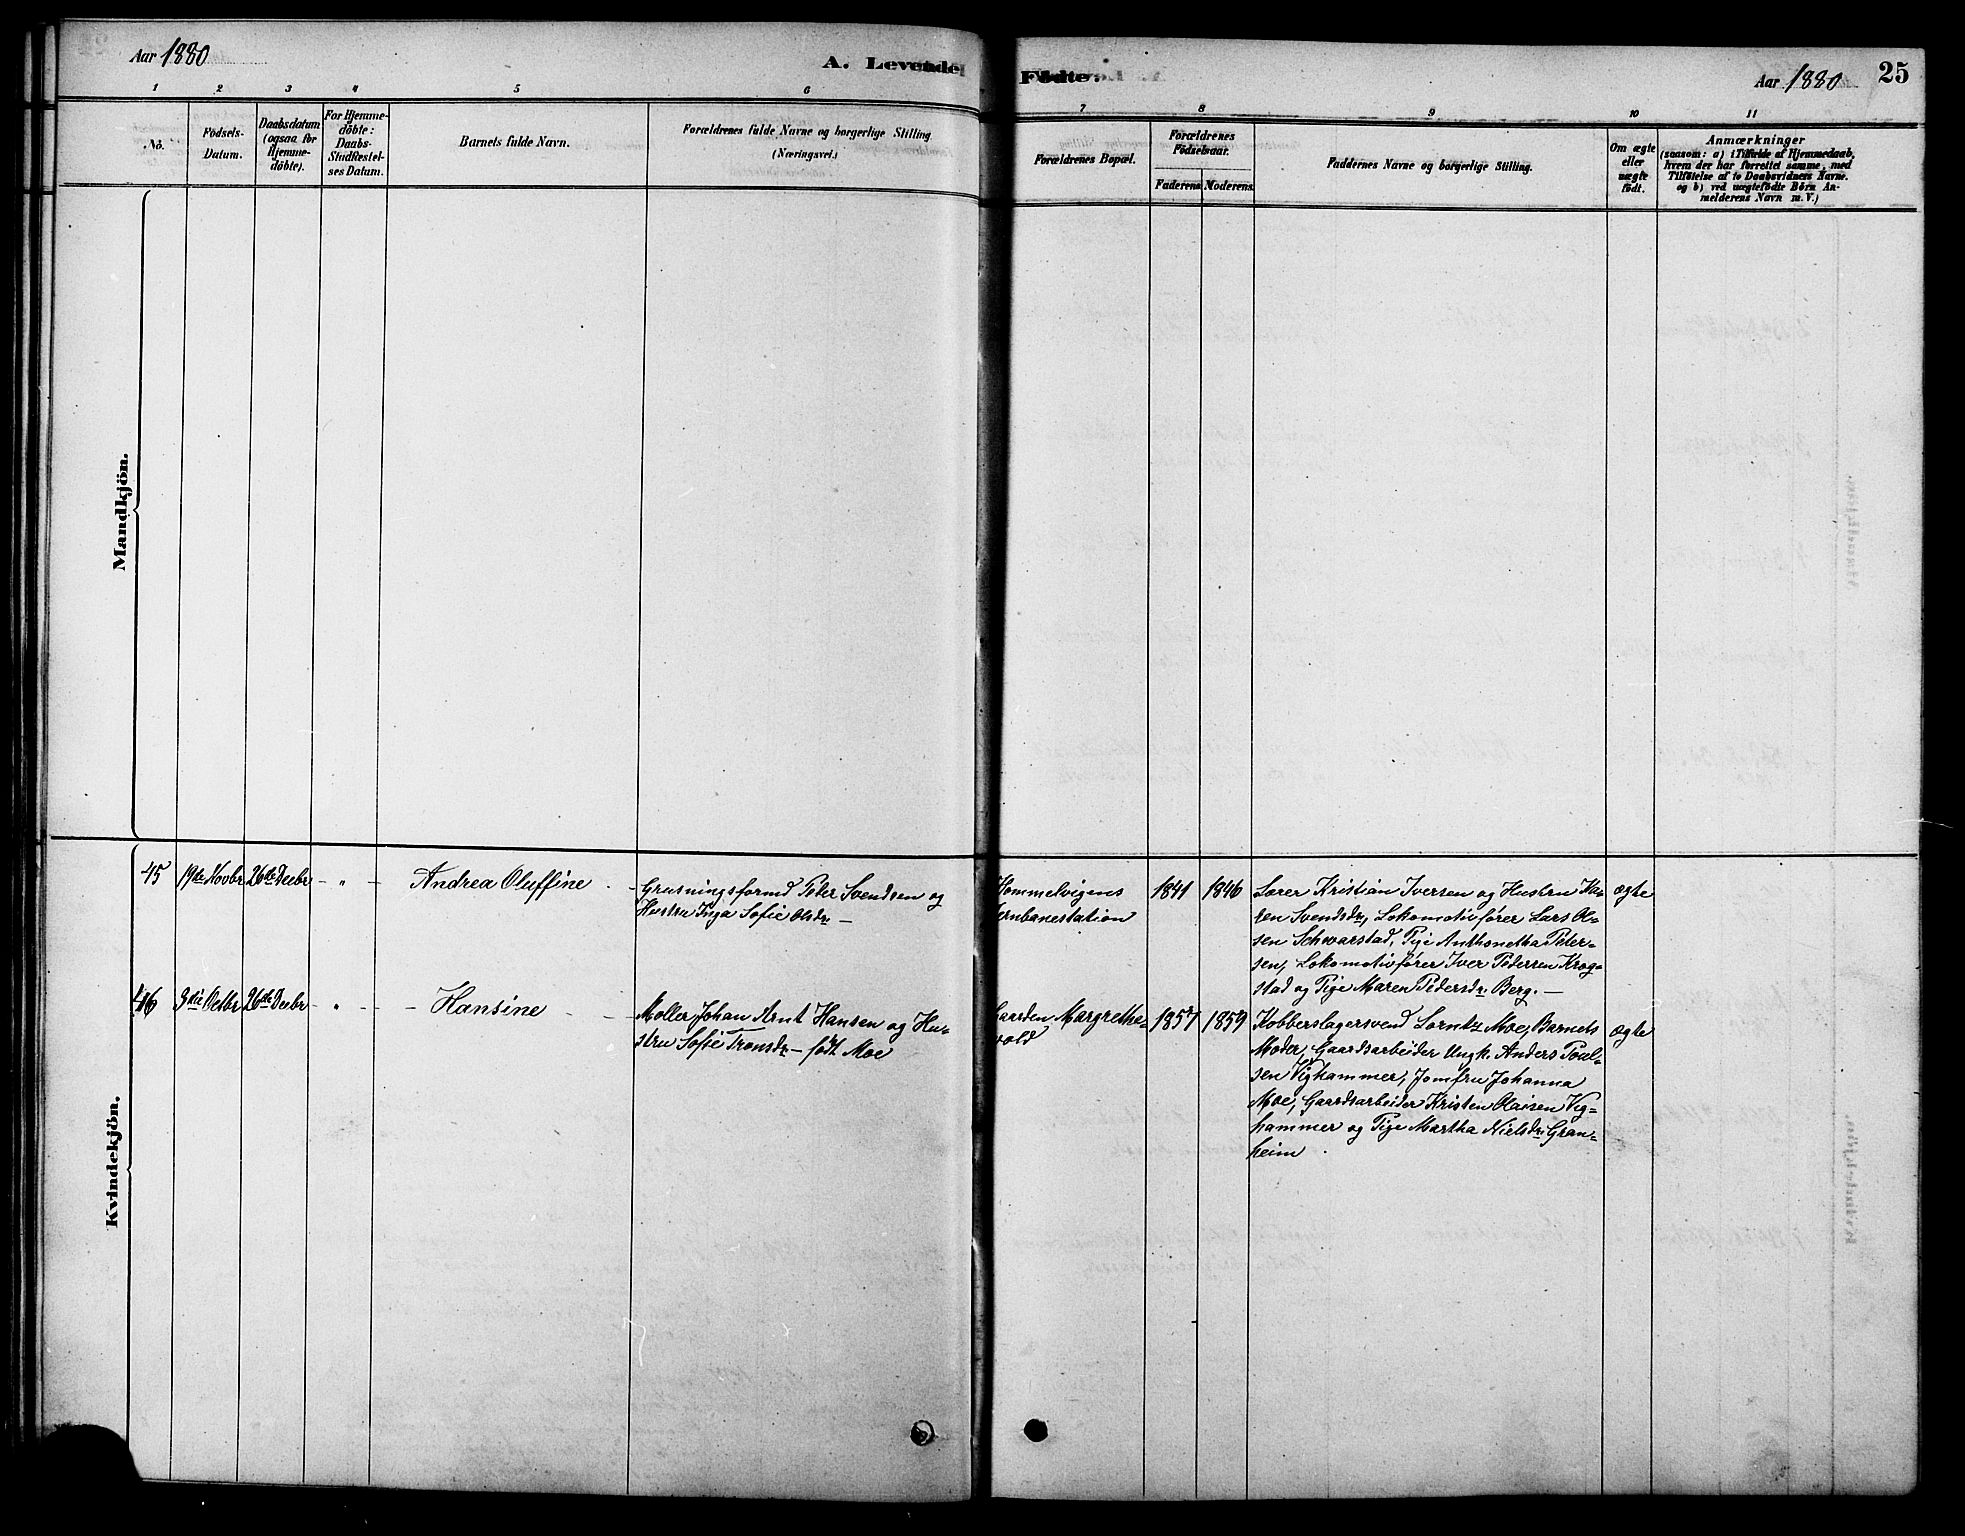 Aar 1880
A. Levende
Fødte.
Aar 1880
25
1 2 3 4 5 6 7 8 9 10 11
No.
Födsels-
Datum.
Daabsdatum
(ogsaa for
Hjemme-
döbte).
For Hjemme-
döbte:
Daabs-
Stadfæstel-
ses Datum.
Barnets fulde Navn.
Forældrenes fulde Navne og borgerlige Stilling.
(Næringsvei.)
Forældrenes Bopæl.
Forældrenes
Födselsaar.
Faderens.
Moderens.
Faddernes Navne og borgerlige Stilling.
Om ægte
eller
uægte
födt.
Anmærkninger
(saasom: a) i Tilfælde af Hjemmedaab,
hvem der har forrettet samme, med
Tilföielse af to Daabsvidners Navne.
og b) ved uægtefödte Börn An-
melderens Navn m. V.)
Mandkjön.
Kvindekjön.
45
19de Novbr
26de Decbr
- " -
Andrea Oluffine
Grusningsformd Peter Svendsen og
Hustru Inga Sofie Olsdr -
Hommelvigens
Jernbanestation
1841
1846
Lærer Kristian Iversen og Hustru Ka-
ren Svendsdr, Lokomotivfører Lars Ol-
sen Schwarstad, Pige Anthonetha Peter-
sen, Lokomotivfører Iver Pedersen Krog-
stad og Pige Maren Pedersdr Berg. -
ægte
46
3die Octbr
26de Decbr
- " -
Hansine
Møller Johan Arnt Hansen og Hu-
stru Sofie Tronsdr - født Moe
Gaarden Margrethe-
vold
1857
1859
Kobberslagersvend Lorntz Moe, Barnets
Moder, Gaardsarbeider Ungk. Anders Poul-
sen Vighammer, Jomfru Johanna
Moe, Gaardsarbeider Kristen Olaisen Vig-
hammer og Pige Martha Nielsdr Gran-
heim
ægte